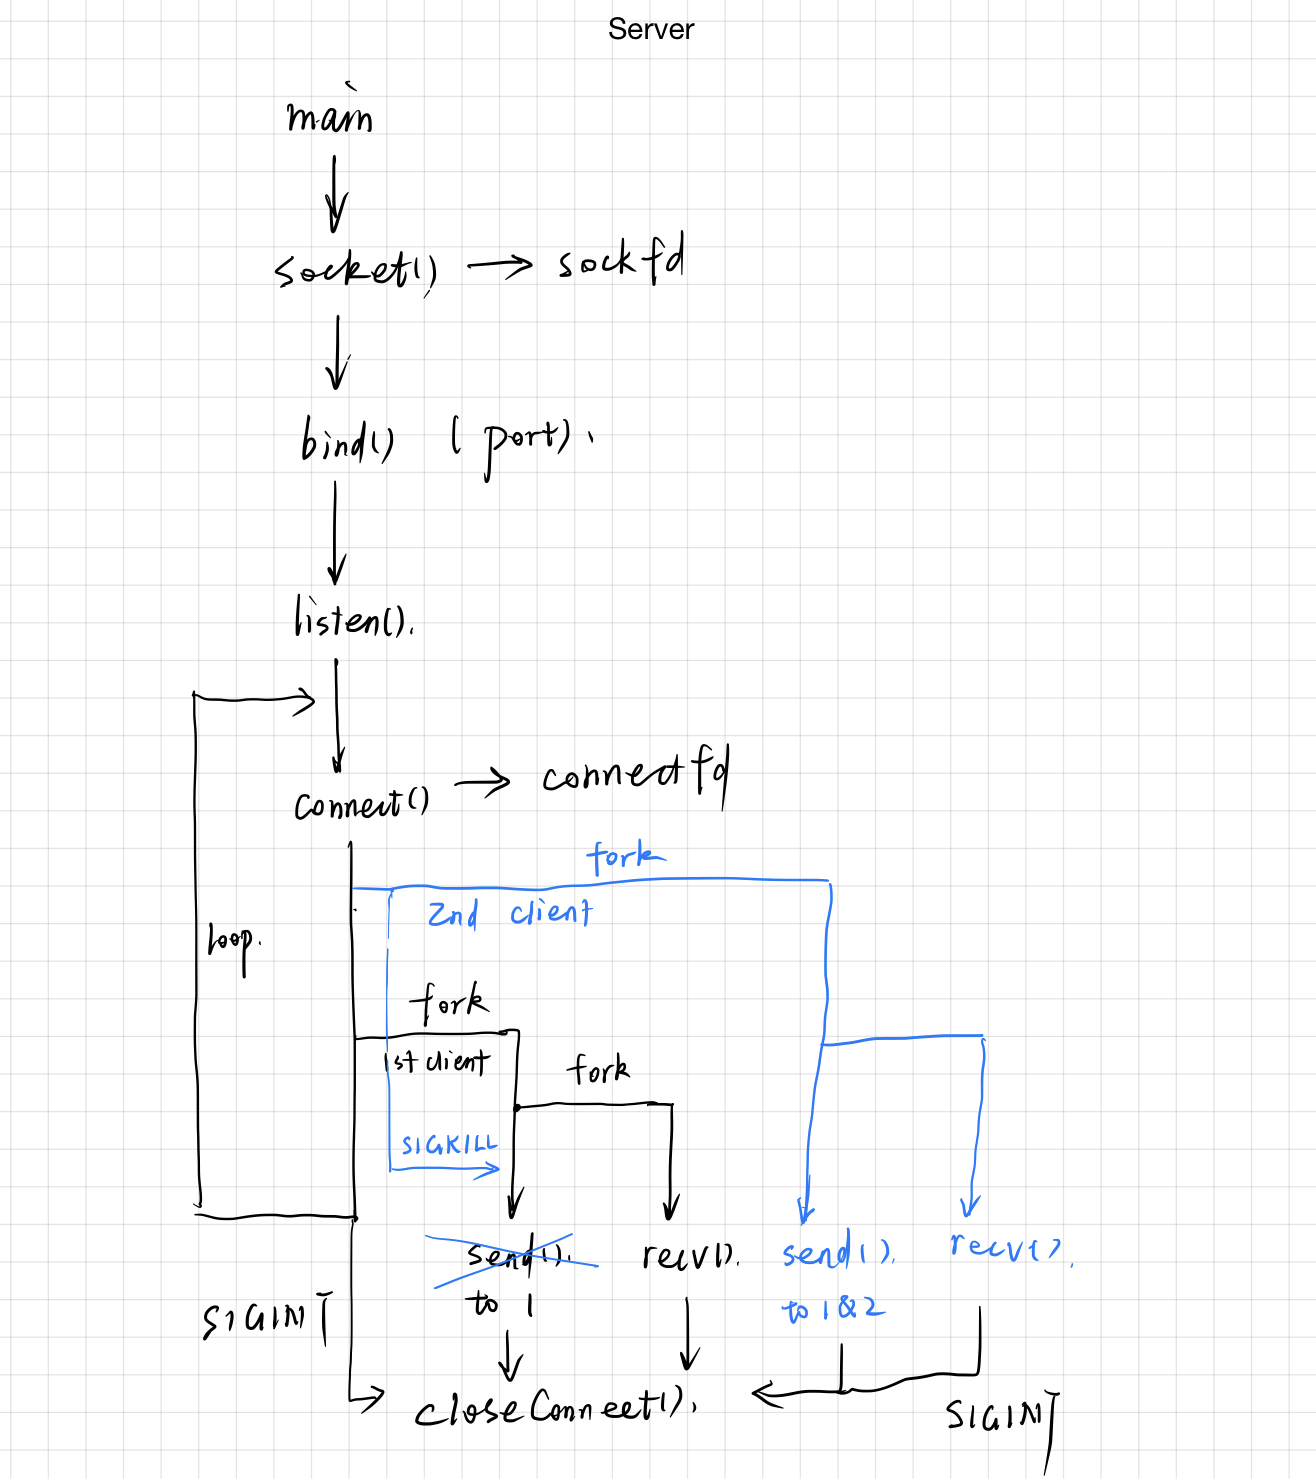 Server
main
socket() → sockfd
bind() (port).
listen().
connect() → connectfd
fork
2nd client
loop.
fork
1st client
fork
SIGKILL
send(). recv(). send(). recv().
to 1 to 1 & 2
SIGINT
closeConnect().
SIGINT